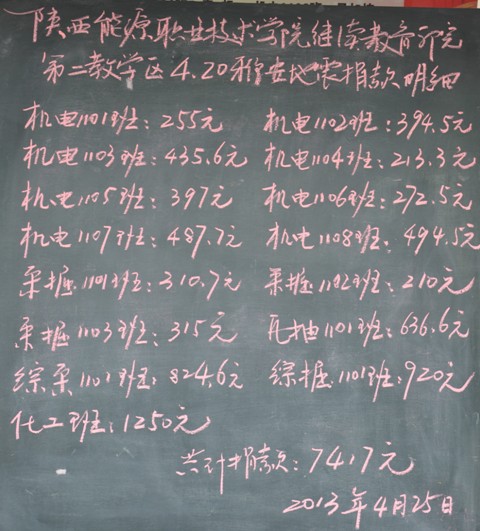 陕西能源职业技术学院继续教育学院
第二教学区4.20雅安地震捐款明细
机电1101班：255元 机电1102班：394.5元
机电1103班：435.6元 机电1104班：213.3元
机电1105班：397元 机电1106班：272.5元
机电1107班：487.7元 机电1108班：494.5元
采掘1101班：310.7元 采掘1102班：210元
采掘1103班：315元 瓦抽1101班：636.6元
综采1101班：824.6元 综掘1101班：920元
化工班：1250元
共计捐款：7417元
2013年4月25日